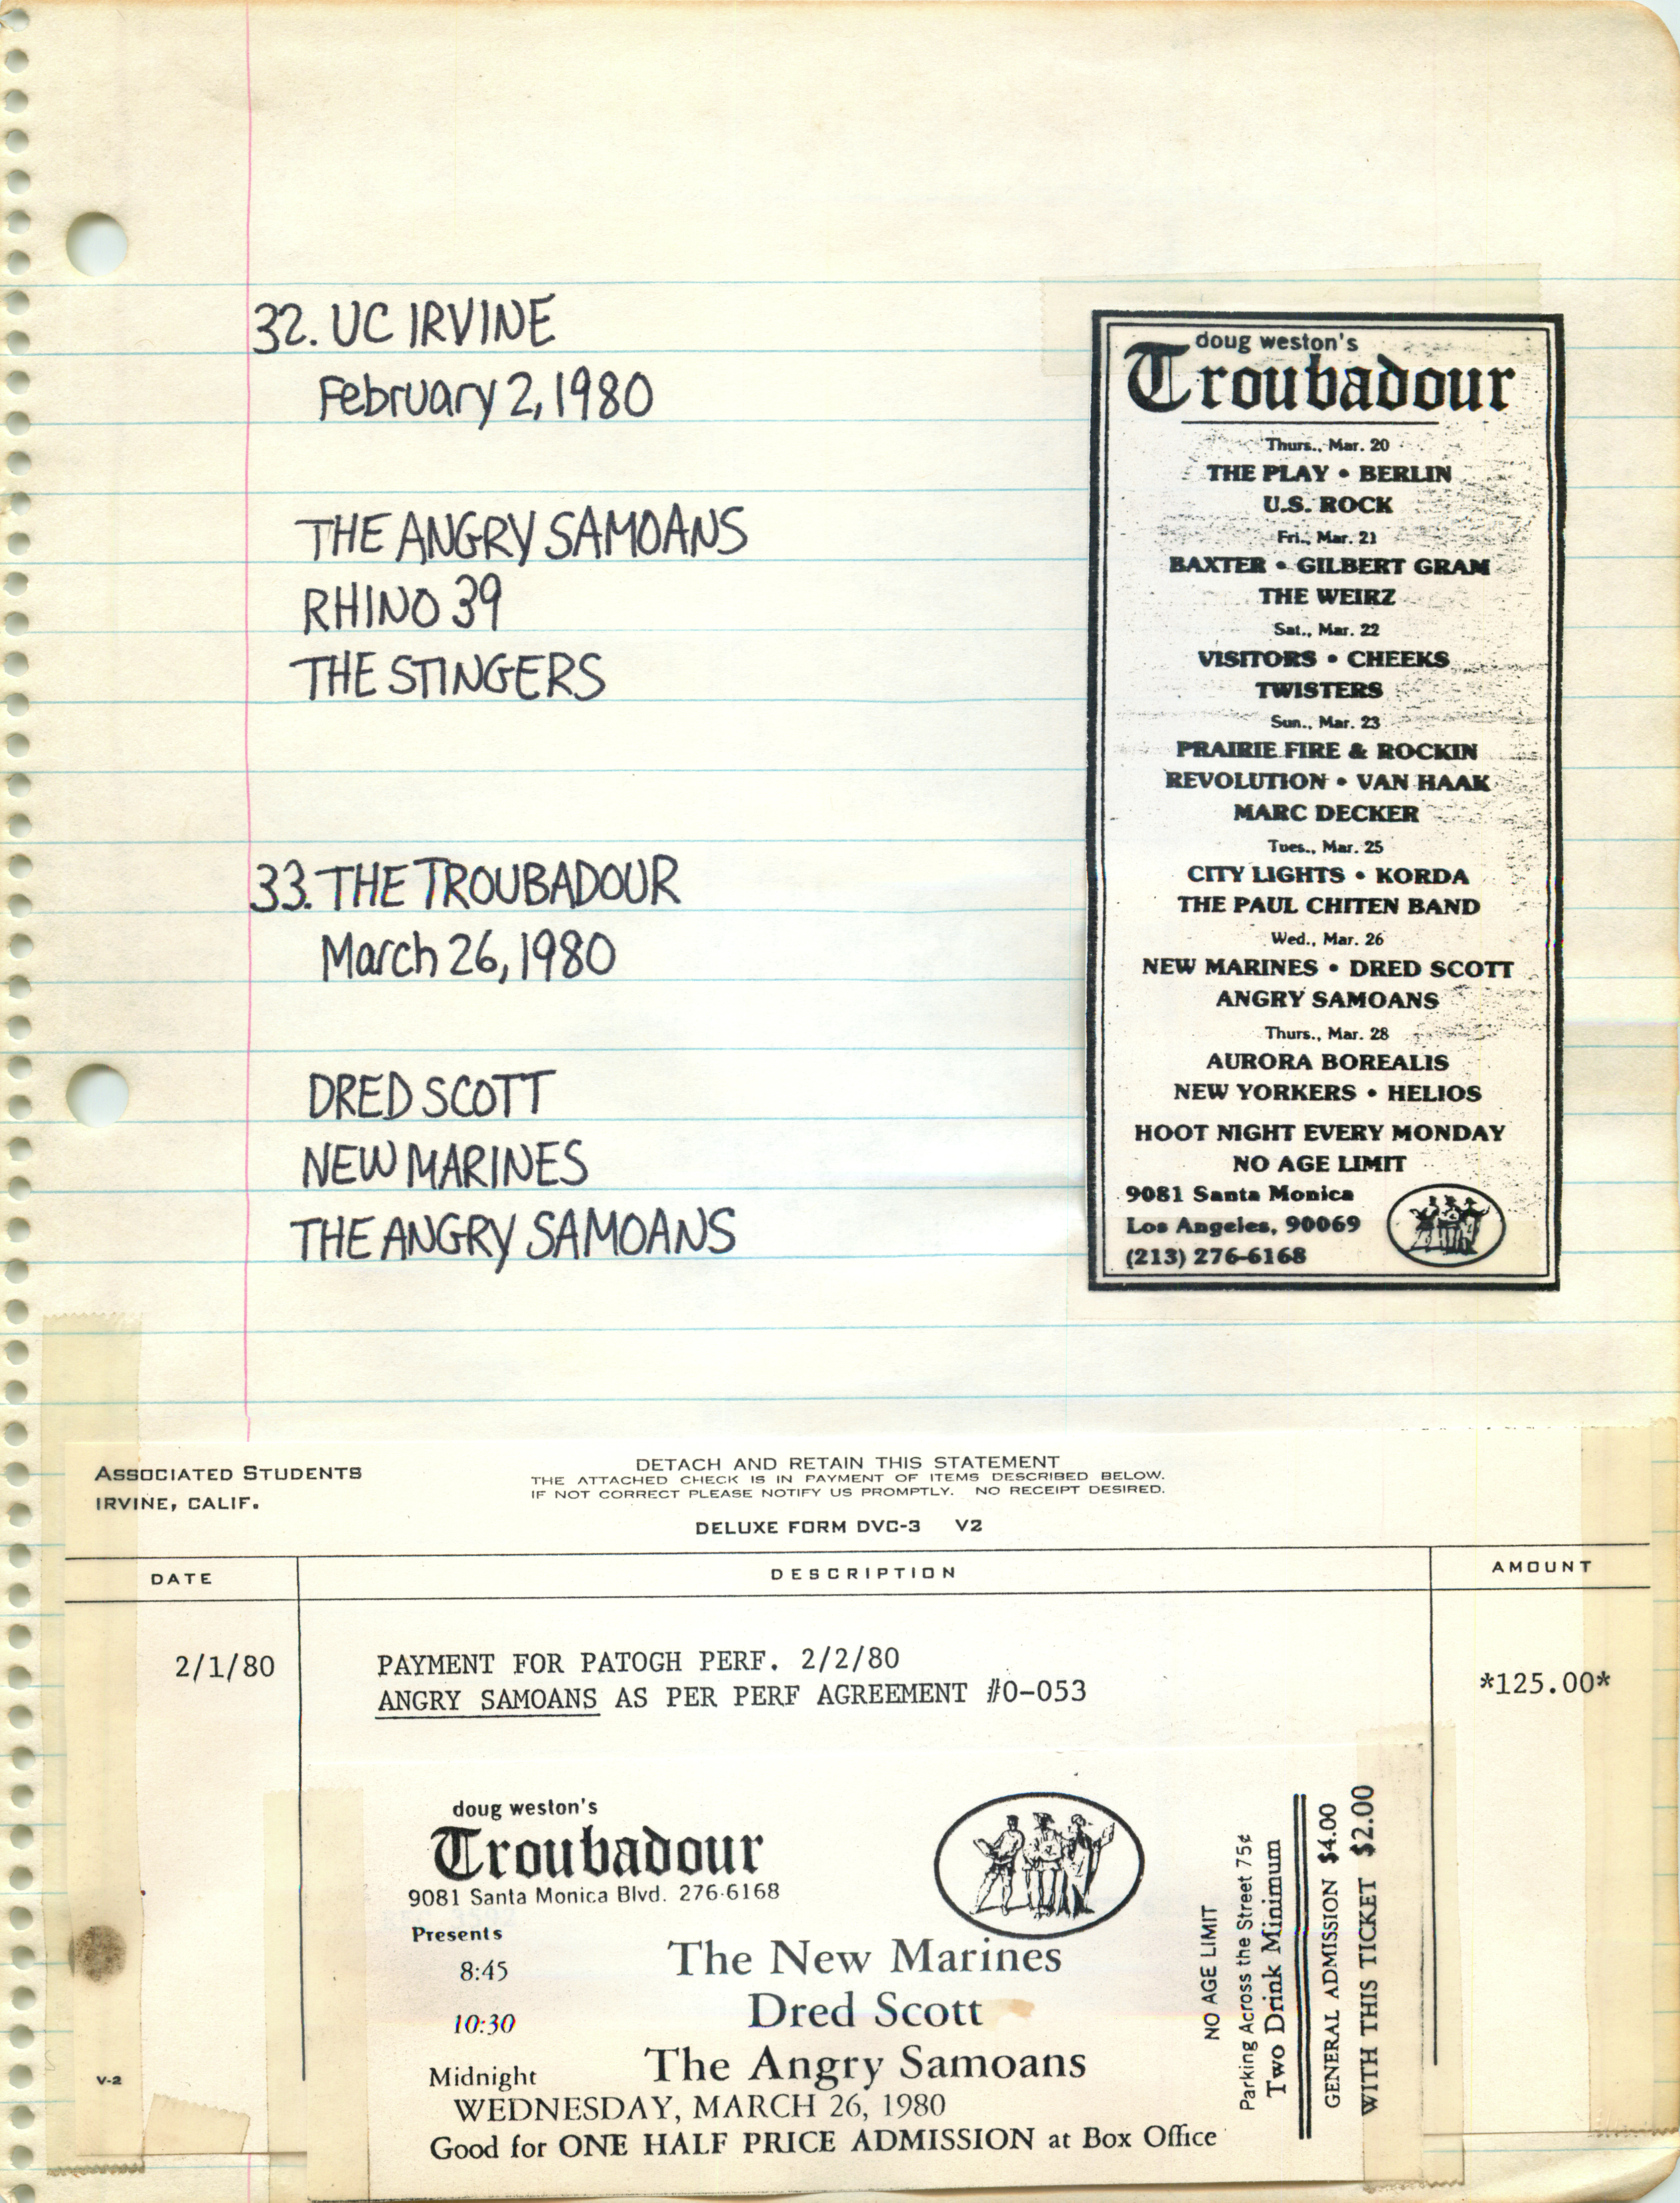 32. UC IRVINE
February 2, 1980
THE ANGRY SAMOANS
RHINO 39
THE STINGERS
33. THE TROUBADOUR
March 26, 1980
DRED SCOTT
NEW MARINES
THE ANGRY SAMOANS
doug weston's
Troubadour
Thurs., Mar. 20
THE PLAY • BERLIN
U.S. ROCK
Fri., Mar. 21
BAXTER • GILBERT GRAM
THE WEIRZ
Sat., Mar. 22
VISITORS • CHEEKS
TWISTERS
Sun., Mar. 23
PRAIRIE FIRE & ROCKIN
REVOLUTION • VAN HAAK
MARC DECKER
Tues., Mar. 25
CITY LIGHTS • KORDA
THE PAUL CHITEN BAND
Wed., Mar. 26
NEW MARINES • DRED SCOTT
ANGRY SAMOANS
Thurs., Mar. 28
AURORA BOREALIS
NEW YORKERS • HELIOS
HOOT NIGHT EVERY MONDAY
NO AGE LIMIT
9081 Santa Monica
Los Angeles, 90069
(213) 276-6168
ASSOCIATED STUDENTS
IRVINE, CALIF.
DETACH AND RETAIN THIS STATEMENT
THE ATTACHED CHECK IS IN PAYMENT OF ITEMS DESCRIBED BELOW.
IF NOT CORRECT PLEASE NOTIFY US PROMPTLY. NO RECEIPT DESIRED.
DELUXE FORM DVC-3 V2
DATE DESCRIPTION AMOUNT
2/1/80 PAYMENT FOR PATOGH PERF. 2/2/80
ANGRY SAMOANS AS PER PERF AGREEMENT #0-053 *125.00*
doug weston's
Troubadour
9081 Santa Monica Blvd. 276-6168
Presents
8:45 The New Marines
10:30 Dred Scott
Midnight The Angry Samoans
WEDNESDAY, MARCH 26, 1980
Good for ONE HALF PRICE ADMISSION at Box Office
NO AGE LIMIT
Parking Across the Street 75¢
Two Drink Minimum
GENERAL ADMISSION $4.00
WITH THIS TICKET $2.00
V-2